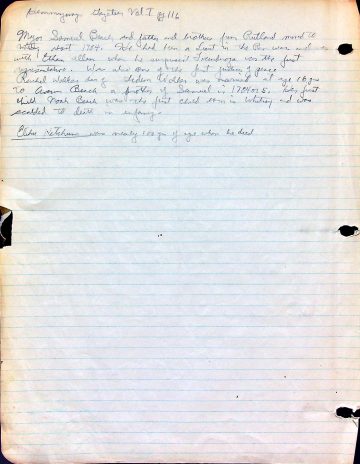 Hemmingway Gazetteer Vol I pg 116
Major Samuel Beach and father and brothers from Rutland moved to
Whiting about 1784. He had been a Lieut in the Rev. war and was
with Ethan Allen when he captured Ticonderoga was the first
representative. Was also one of the first justices of peace.
Rachel Walker dau of Gideon Walker was married at age 16 yrs
to Aaron Beach a brother of Samuel in 1784 or 5. Their first
child Noah Beach was the first child born in Whiting and was
scalded to death in infancy.
Elihu Ketcham was nearly 100 yrs of age when he died